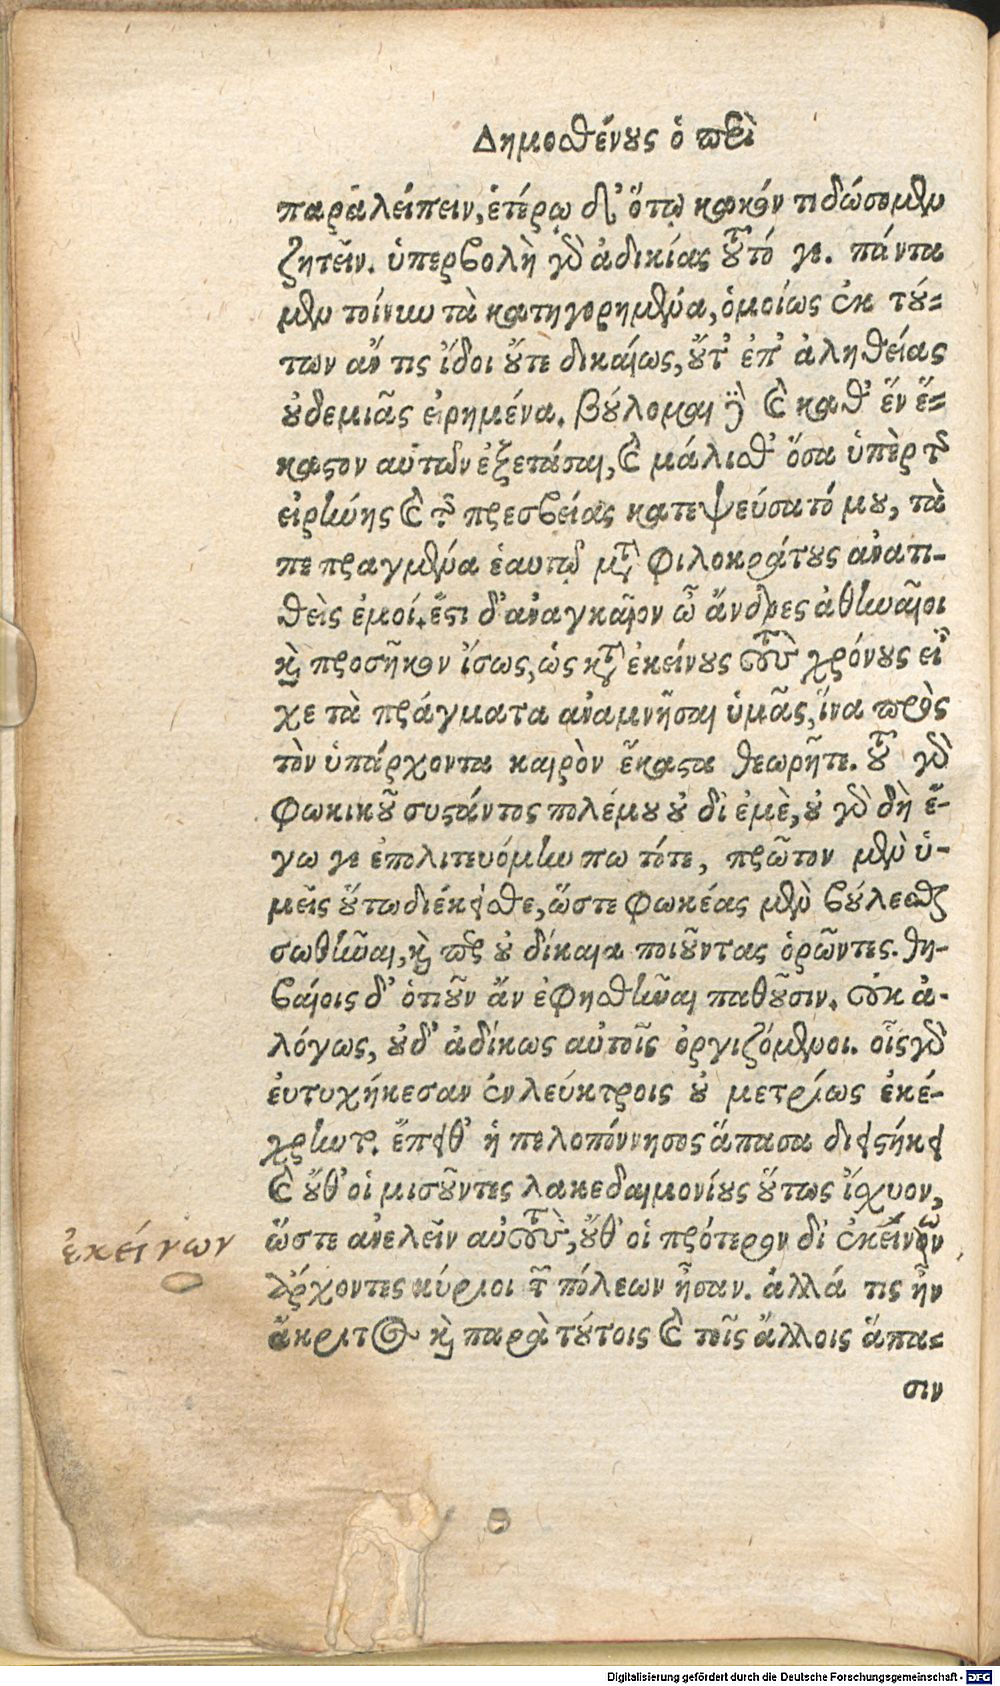 Δημοσθένους ὁ περὶ
παραλείπειν, ἑτέρῳ δ' ὅτῳ κακόν τι δώσομεν
ζητεῖν. ὑπερβολὴ γὰρ ἀδικίας τοῦτό γε. πάντα
μὲν τοίνυν τὰ κατηγορημένα, ὁμοίως ἐκ τού-
των ἄν τις ἴδοι οὔτε δικαίως, οὔτ' ἐπ' ἀληθείας
οὐδεμιᾶς εἰρημένα. βούλομαι δὲ καὶ καθ' ἓν ἕ-
καστον αὐτῶν ἐξετάσαι, καὶ μάλισθ' ὅσα ὑπὲρ τῆς
εἰρήνης καὶ τῆς πρεσβείας κατεψεύσατό μου, τὰ
πεπραγμένα ἑαυτῷ μετὰ Φιλοκράτους ἀνατι-
θεὶς ἐμοί. ἔστι δ' ἀναγκαῖον ὦ ἄνδρες ἀθηναῖοι
καὶ προσῆκον ἴσως, ὡς κατ' ἐκείνους τοὺς χρόνους εἶ
χε τὰ πράγματα ἀναμνῆσαι ὑμᾶς, ἵνα πρὸς
τὸν ὑπάρχοντα καιρὸν ἕκαστα θεωρῆτε. τοῦ γὰρ
Φωκικοῦ συστάντος πολέμου οὐ δι ἐμὲ, οὐ γὰρ δὴ ἔ-
γωγε ἐπολιτευόμην πω τότε, πρῶτον μὲν ὑ-
μεῖς οὕτω διέκεισθε, ὥστε Φωκέας μὲν βούλεσθαι
σωθῆναι, καὶ περ οὐ δίκαια ποιοῦντας ὁρῶντες. θη-
βαίοις δ' ὁτιοῦν ἂν ἐφησθῆναι παθοῦσιν. οὐκ ἀ-
λόγως, οὐδ' ἀδίκως αὐτοῖς ὀργιζόμενοι. οἷς γὰρ
εὐτυχήκεσαν ἐν λεύκτροις οὐ μετρίως ἐκέ-
χρηντο. ἔπειθ' ἡ πελοπόννησος ἅπασα διειστήκει
καὶ οὔθ' οἱ μισοῦντες λακεδαιμονίους οὕτως ἴσχυον,
ὥστε ἀνελεῖν αὐτοὺς, οὔθ' οἱ πρότερον δι ἐκεῖνον
ἄρχοντες κύριοι τῶν πόλεων ἦσαν. ἀλλά τις ἦν
ἄκριτος καὶ παρὰ τούτοις καὶ τοῖς ἄλλοις ἅπα-
σιν
ἐκείνων